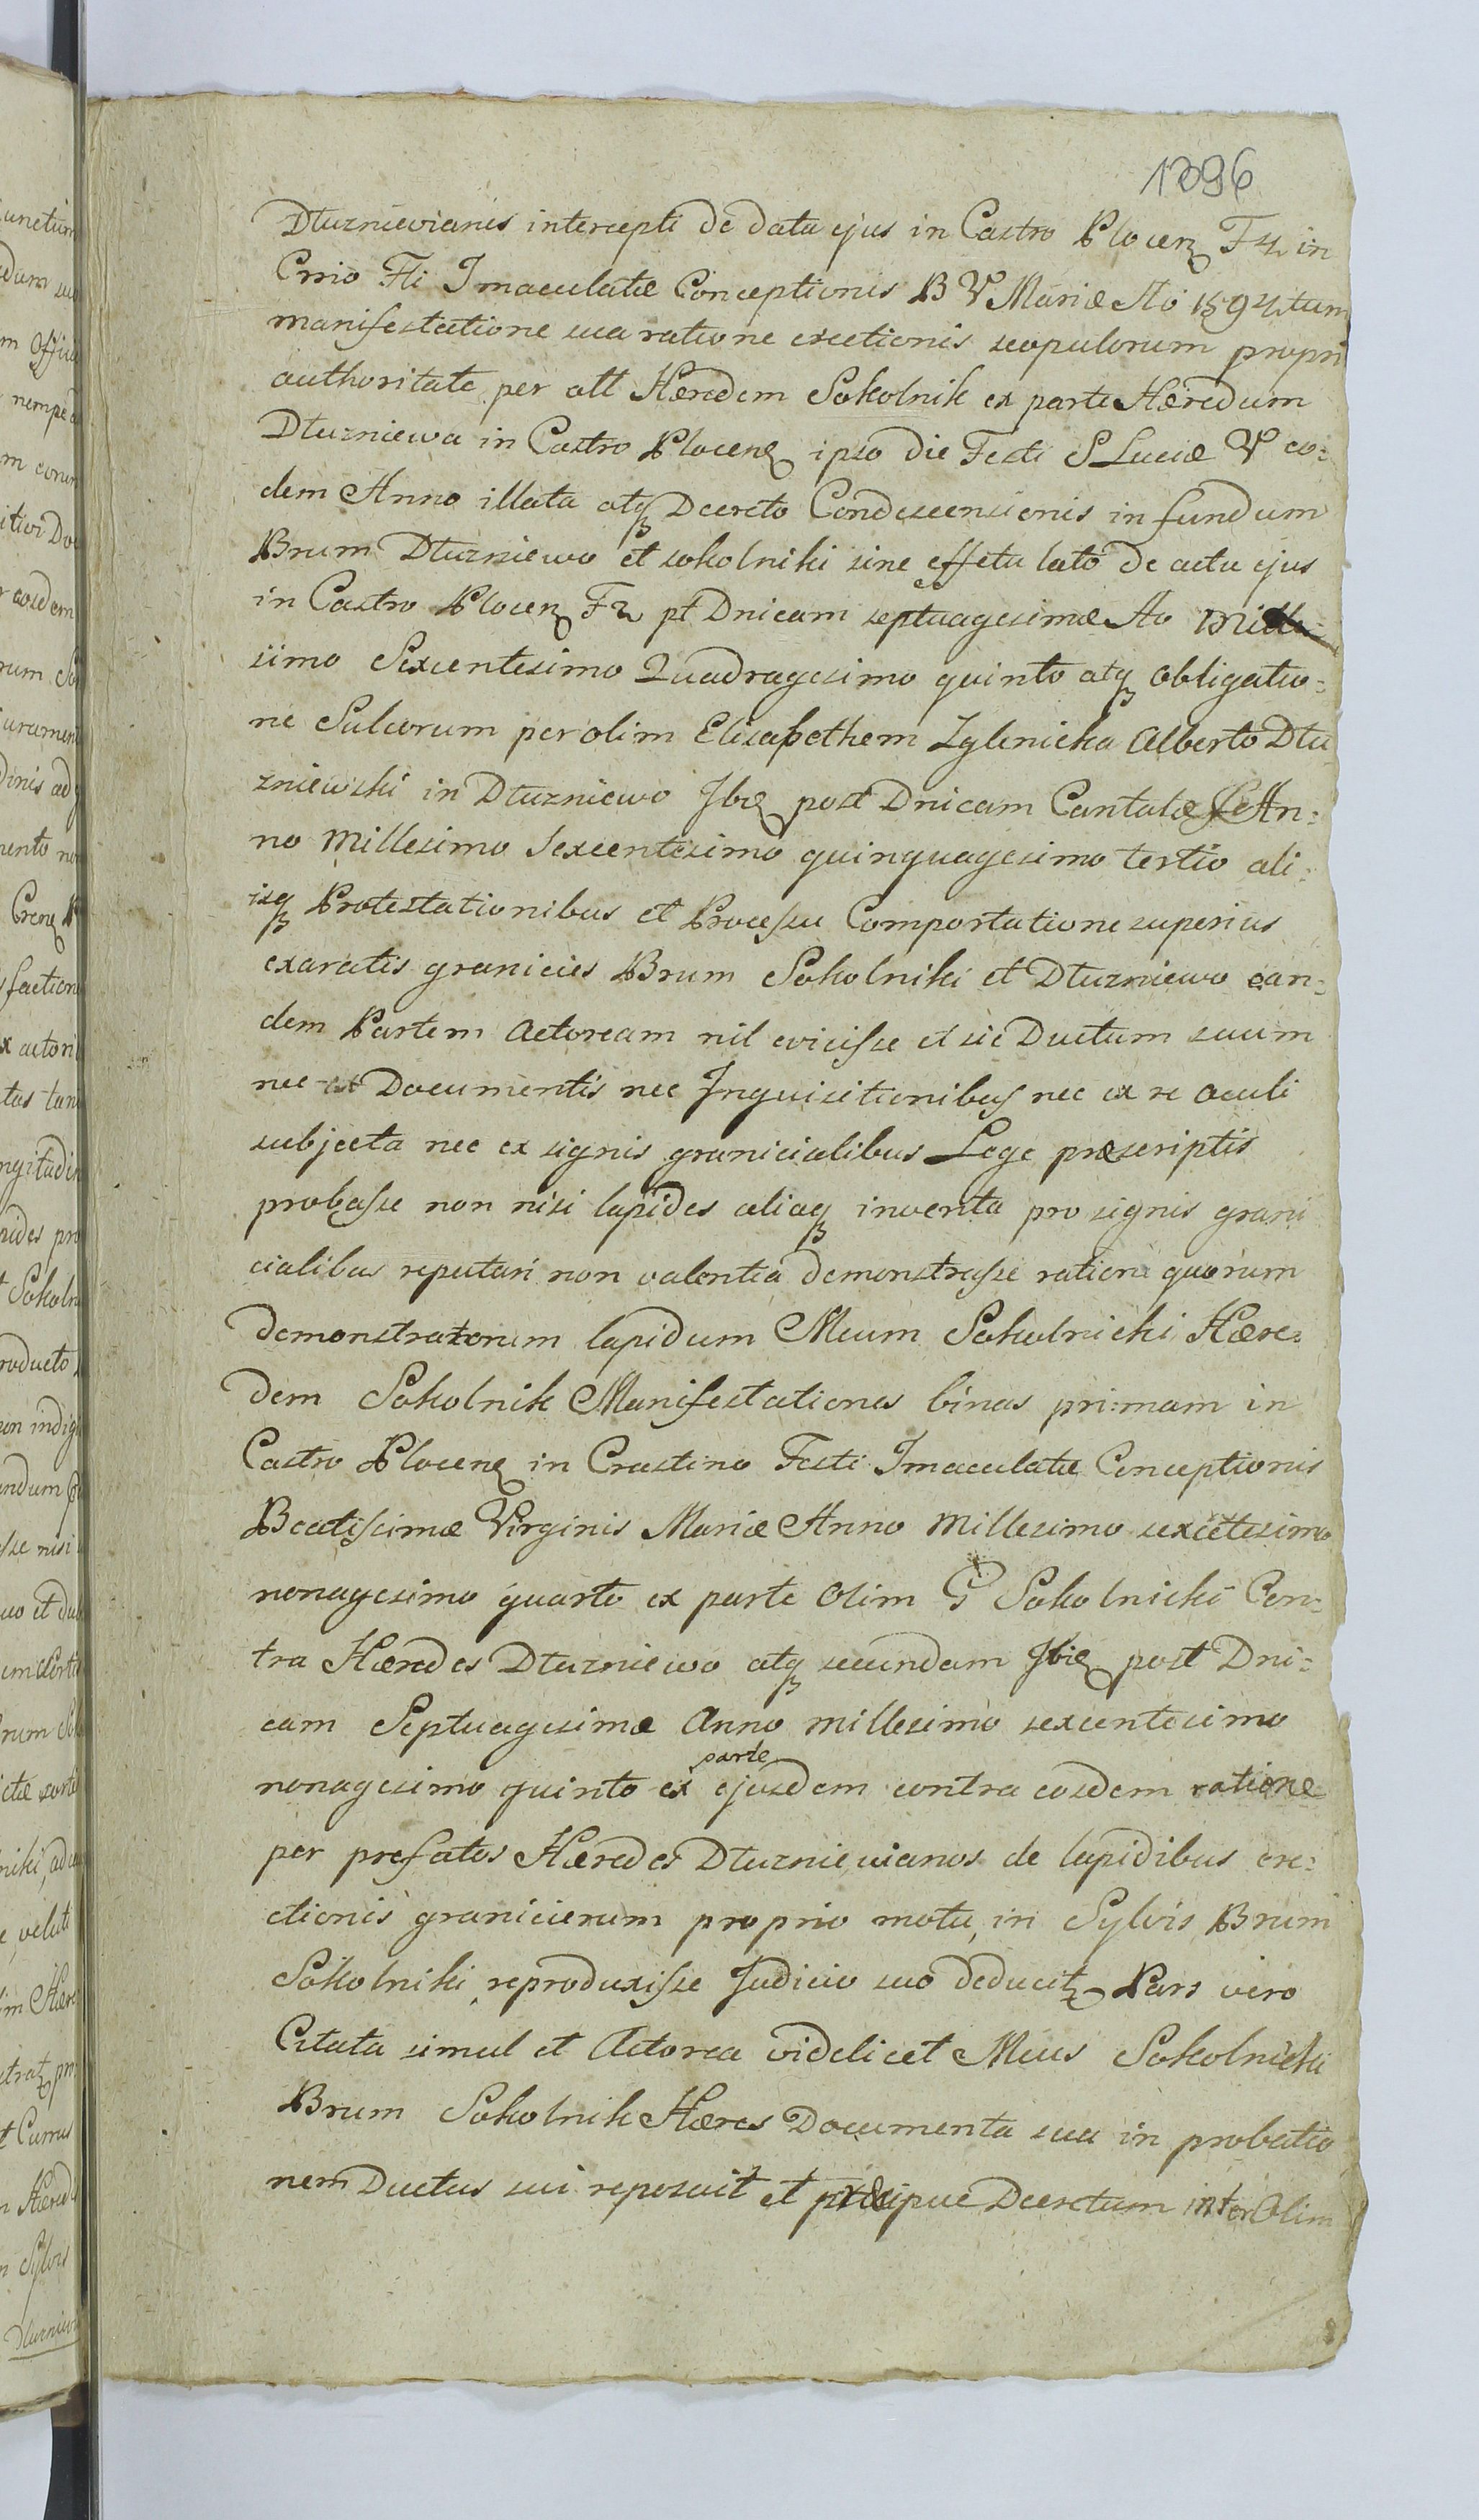 1396
Dłuznievianis intercepti de data ejus in Castro Plocen F 4 in
Crno Fti Imaculatæ Conceptionis B V Mariæ Ao 1594 tum
manifestatione sua ratione erectionis scopulorum propri
authoritate per att Hæredem Sokolnik ex parte Hæredum
Dłuzniewa in Castro Plocen ipso die Festi S Luciæ V eo:
dem Anno illata atq Decreto Condescensionis in fundum
Brum Dłuzniewo et sokolniki sine effetu lato de actu ejus
in Castro Plocen F 2 pt Dnicam septuagesimæ Ao Mille:
simo Sexentesimo Quadragesimo quinto atq obligatio:
ne Sulcorum per olim Elisabethem Zglenicka Alberto Dłu
zniewski in Dłuzniewo Ibe post Dnicam Cantate An:
no Millesimo Sexcentesimo quinquagesimo tertio ali:
isq Protestationibus et Processu Comportatione superius
exaratis granicies Brum Sokolniki et Dłuzniewo ean:
dem Partem Actoream nil evicisse et sic Ductum suum
nec ex Documentis nec Inquisitionibus nec ex re oculi
subjecta nec ex signis granicialibus Lege præscriptis
probasse non nisi lapides aliaq inventa pro signis grani
cialibus reputari non valentia demonstrasse ratione quorum
demonstratorum lapidum Mcum Sokolnicki Hære:
dem Sokolnik Manifestationes binas primam in
Castro Plocen in Crastino Festi Imaculatæ Conceptionis
Beatissimæ Virginis Mariæ Anno Millesimo sexcetesimo
nonagesimo quarto ex parte olim G Sokolnicki Con:
tra Hæredes Dłuzniewo atq secundam Ibie post Dni:
cam Septuagesimæ Anno millesimo sexcentesimo
nonagesimo quinto ex parte ejusdem contra eosdem ratione
per prefatos Hæredes Dłuzniewianos de lapidibus ere:
ctionis granicierum proprio motu in Sylvis Brum
Sokolniki reproduxisse Judicio suo deducit Pars vero
Citata simul et Actorea videlicet Mcus Sokolnicki
Brum Sokolnik Hæres Documenta sua in probatio
nem Ductus sui reposuit et præcipue Decretum inter Olim